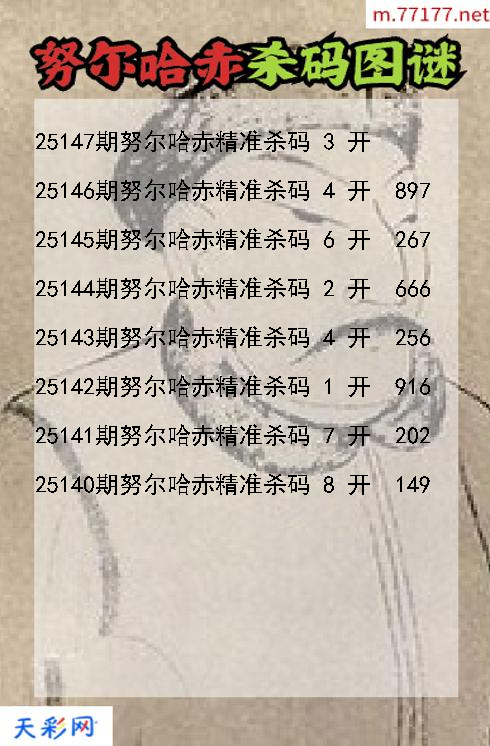 m.77177.net
努尔哈赤杀码图谜
25147期努尔哈赤精准杀码 3 开
25146期努尔哈赤精准杀码 4 开 897
25145期努尔哈赤精准杀码 6 开 267
25144期努尔哈赤精准杀码 2 开 666
25143期努尔哈赤精准杀码 4 开 256
25142期努尔哈赤精准杀码 1 开 916
25141期努尔哈赤精准杀码 7 开 202
25140期努尔哈赤精准杀码 8 开 149
天彩网